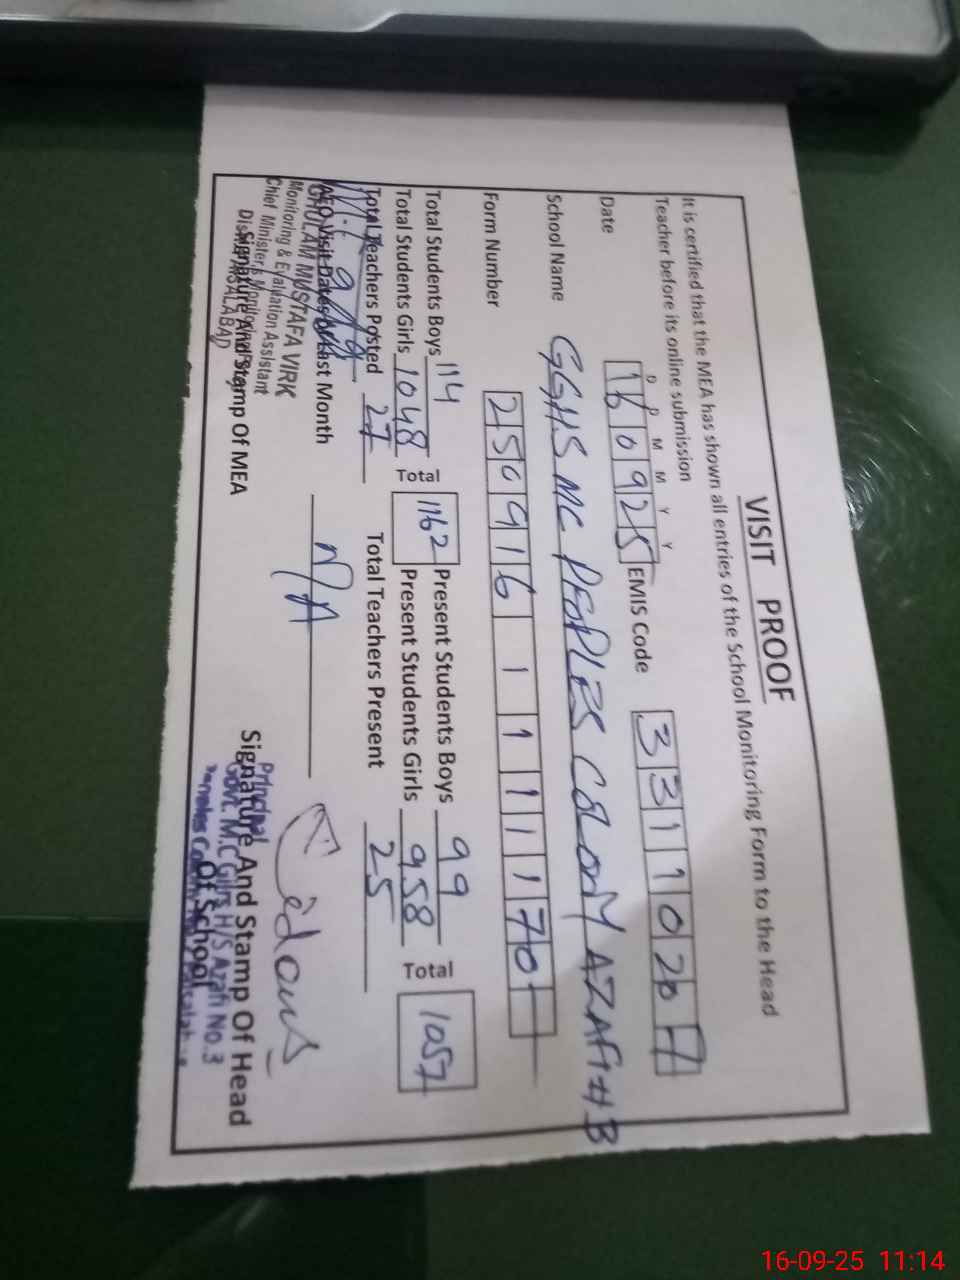 VISIT PROOF
It is certified that the MEA has shown all entries of the School Monitoring Form to the Head
Teacher before its online submission
D D M M Y Y
Date 160925 EMIS Code 33110207
School Name GGHS MC PEOPLES COLONY AZAFI # B
Form Number 250916 1 1 1 1 170
Total Students Boys 114 Total 1162 Present Students Boys 99 Total 1057
Total Students Girls 1048 Present Students Girls 958
Total Teachers Posted 27 Total Teachers Present 25
AEO Visit Dates of Last Month N/A
GHULAM MUSTAFA VIRK
Monitoring & Evaluation Assistant
Chief Minister's Monitoring
FAISALABAD
Signature And Stamp Of MEA
Signature And Stamp Of Head
Of School
Principal
Govt. M.C Girls H/S Azafi No.3
16-09-25 11:14